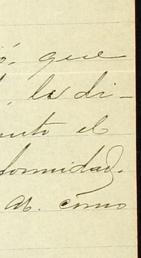 ó, que
, la di-
unto el
formidad.
M. como